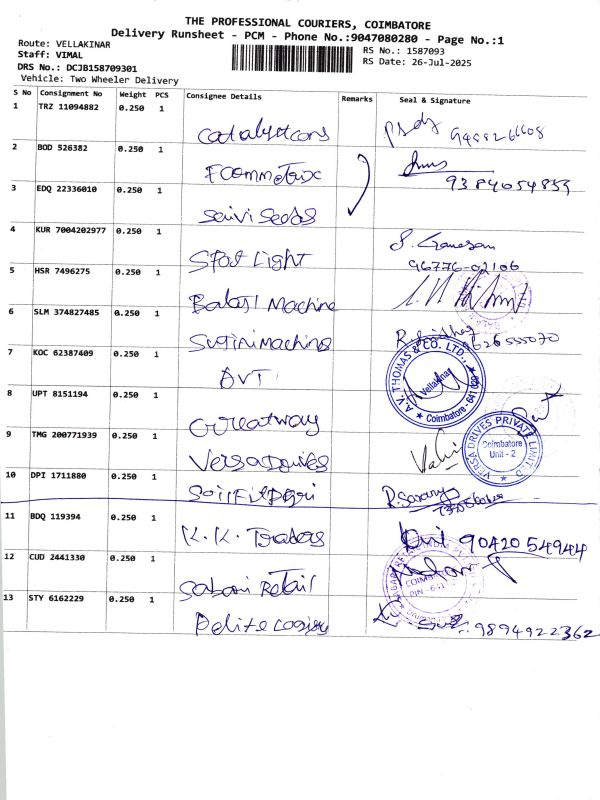 THE PROFESSIONAL COURIERS, COIMBATORE
Delivery Runsheet - PCM - Phone No.:9047080280 - Page No.:1
Route: VELLAKINAR
RS No.: 1587093
Staff: VIMAL
RS Date: 26-Jul-2025
DRS No.: DCJB158709301
Vehicle: Two Wheeler Delivery
S No Consignment No Weight PCS Consignee Details Remarks Seal & Signature
1 TRZ 11094882 0.250 1
2 BOD 526382 0.250 1
9384054855
3 EDQ 22336010 0.250 1
4 KUR 7004202977 0.250 1
Spot Light
96776-02106
5 HSR 7496275 0.250 1
Machine
6 SLM 374827485 0.250 1
7 KOC 62387409 0.250 1
A.V. THOMAS & CO. LTD.,
Vellakinar
Coimbatore - 641 029
8 UPT 8151194 0.250 1
9 TMG 200771939 0.250 1
VersaDrives
VERSA DRIVES PRIVATE LIMITED
Coimbatore
Unit - 2
10 DPI 1711880 0.250 1
11 BDQ 119394 0.250 1
K.K. Traders
90420 54944
12 CUD 2441330 0.250 1
Sabari Retail
13 STY 6162229 0.250 1
9894922362